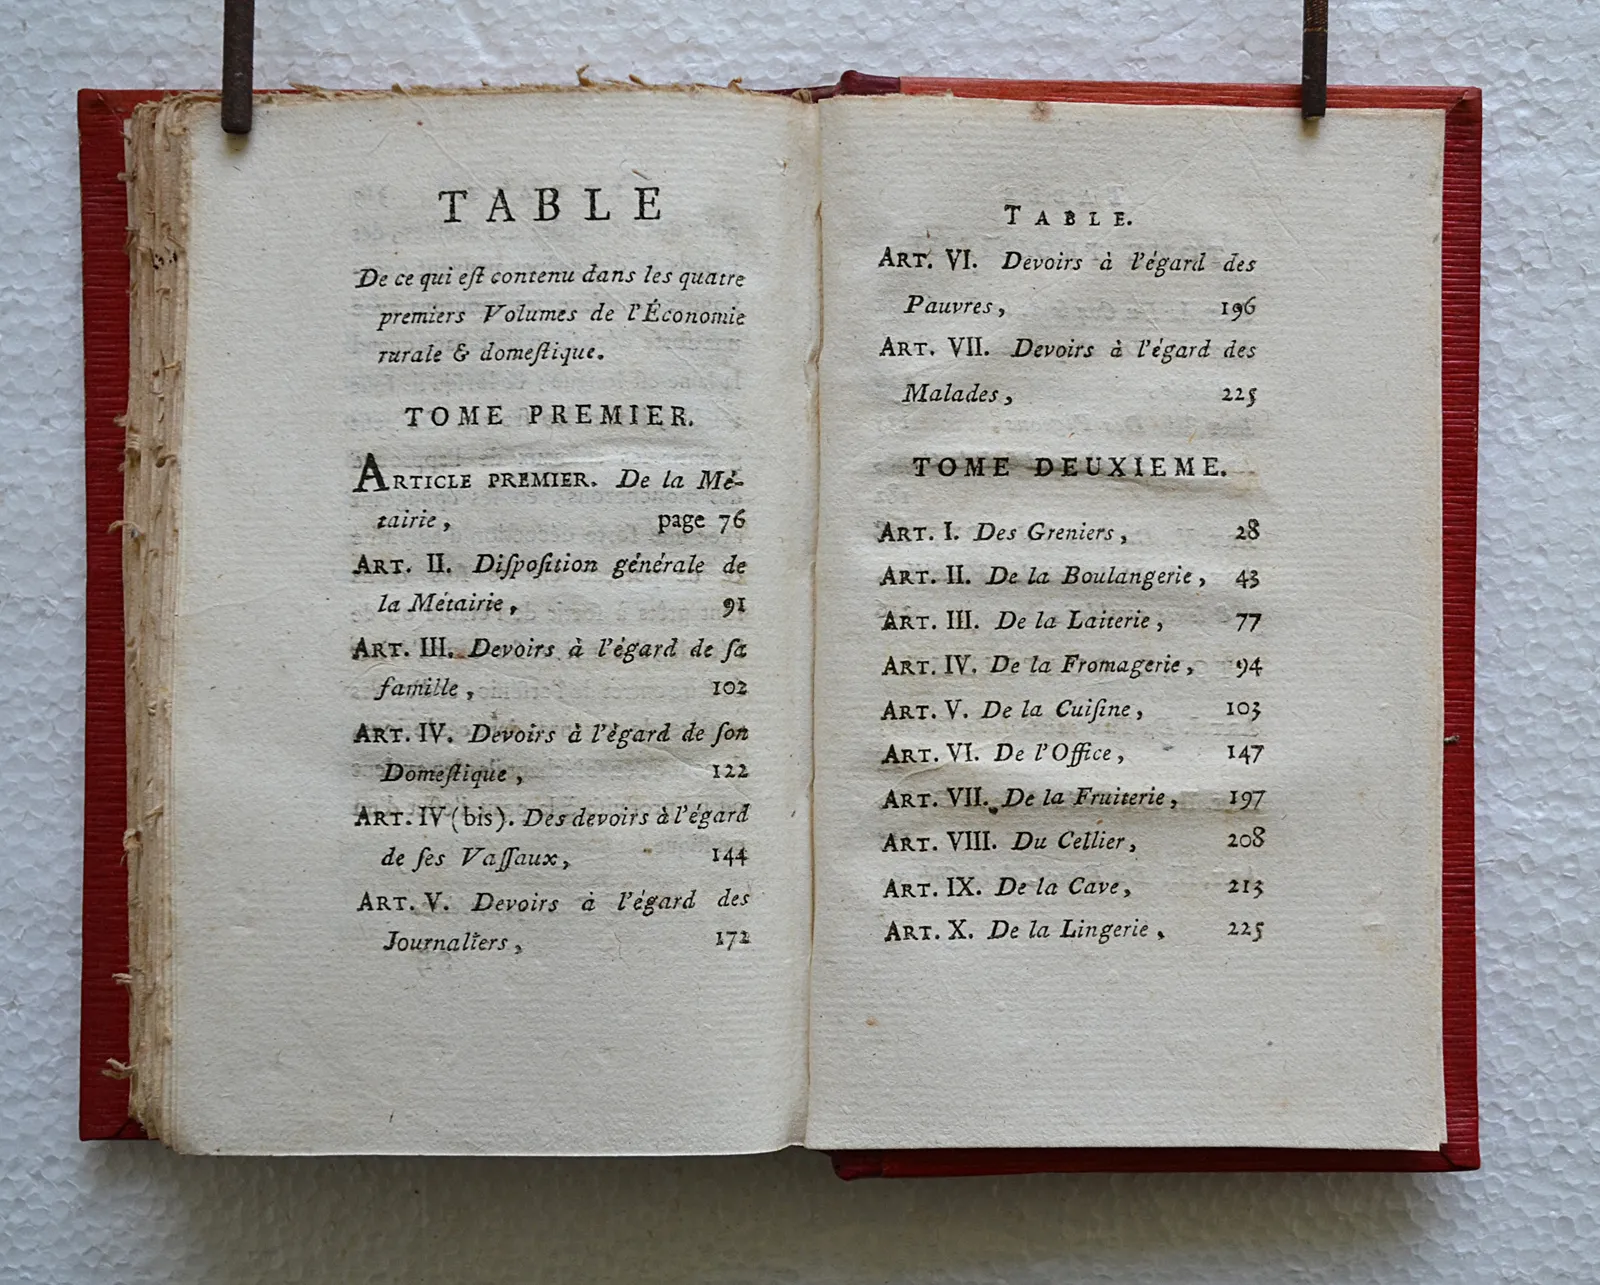 TABLE
De ce qui eſt contenu dans les quatre
premiers Volumes de l'Économie
rurale & domeſtique.
TOME PREMIER.
ARTICLE PREMIER. De la Mé-
tairie, page 76
ART. II. Diſpoſition générale de
la Métairie, 91
ART. III. Devoirs à l'égard de ſa
famille, 102
ART. IV. Devoirs à l'égard de ſon
Domeſtique, 122
ART. IV (bis). Des devoirs à l'égard
de ſes Vaſſaux, 144
ART. V. Devoirs à l'égard des
Journaliers, 172
TABLE.
ART. VI. Devoirs à l'égard des
Pauvres, 196
ART. VII. Devoirs à l'égard des
Malades, 225
TOME DEUXIEME.
ART. I. Des Greniers, 28
ART. II. De la Boulangerie, 43
ART. III. De la Laiterie, 77
ART. IV. De la Fromagerie, 94
ART. V. De la Cuiſine, 103
ART. VI. De l'Office, 147
ART. VII. De la Fruiterie, 197
ART. VIII. Du Cellier, 208
ART. IX. De la Cave, 213
ART. X. De la Lingerie, 225